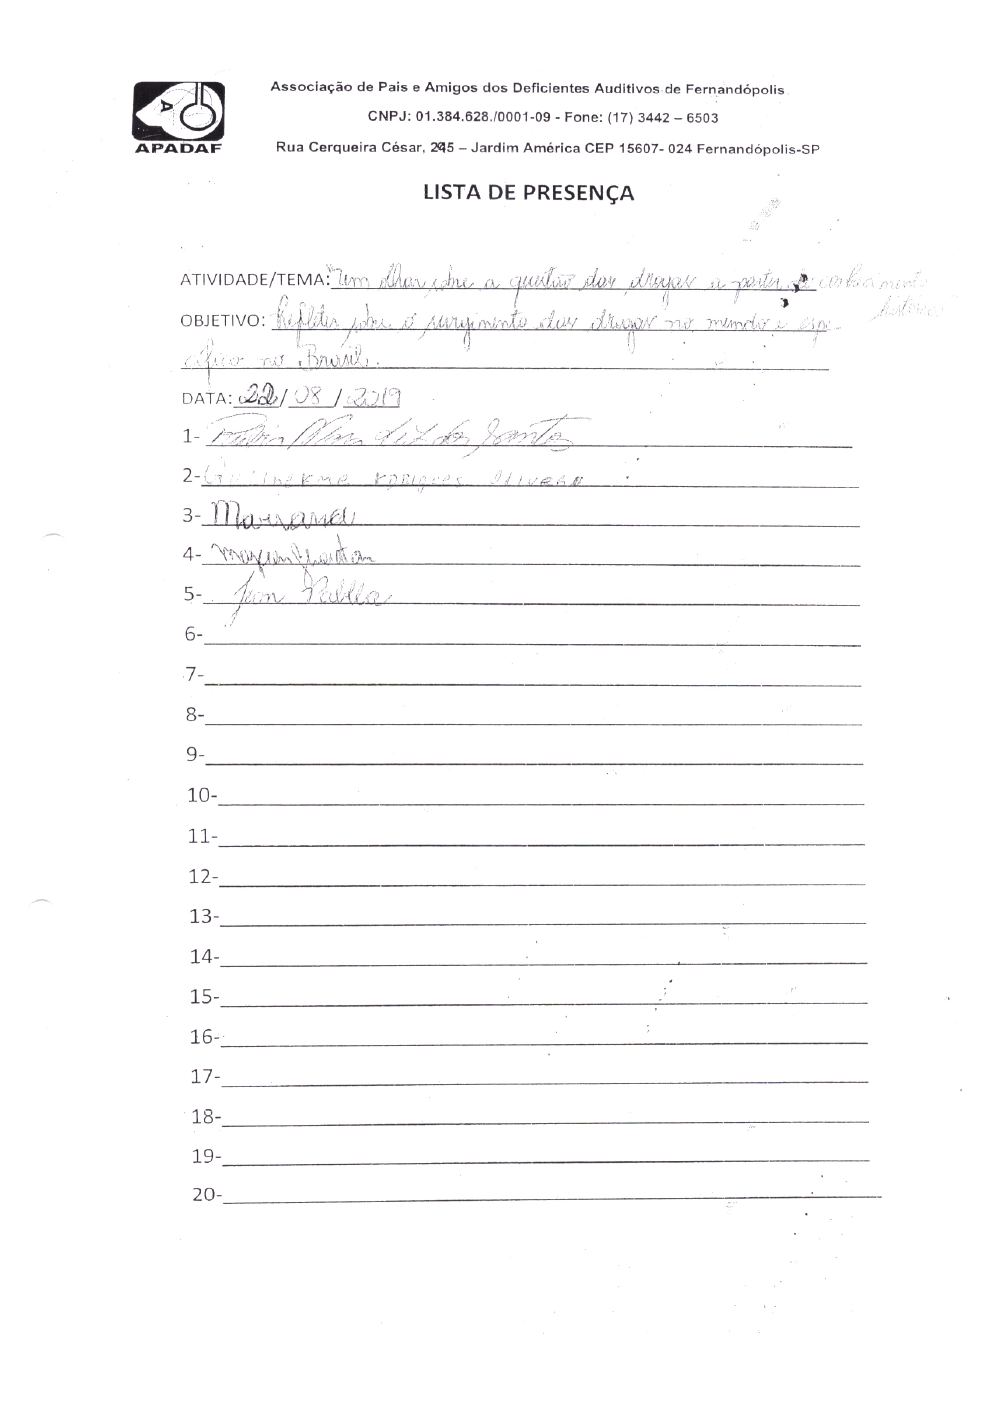 Associação de Pais e Amigos dos Deficientes Auditivos de Fernandópolis
CNPJ: 01.384.628./0001-09 - Fone: (17) 3442 – 6503
APADAF
Rua Cerqueira César, 245 – Jardim América CEP 15607- 024 Fernandópolis-SP
LISTA DE PRESENÇA
ATIVIDADE/TEMA: "Um olhar sobre a questão das drogas a partir de conhecimento
histórico
OBJETIVO: Refletir sobre o surgimento das drogas no mundo e espe-
cífico no Brasil.
DATA: 22/08/2019
1- dos Santos
2- Guilherme Rodrigues Oliveira
3-
4-
5- Jean
6-
7-
8-
9-
10-
11-
12-
13-
14-
15-
16-
17-
18-
19-
20-